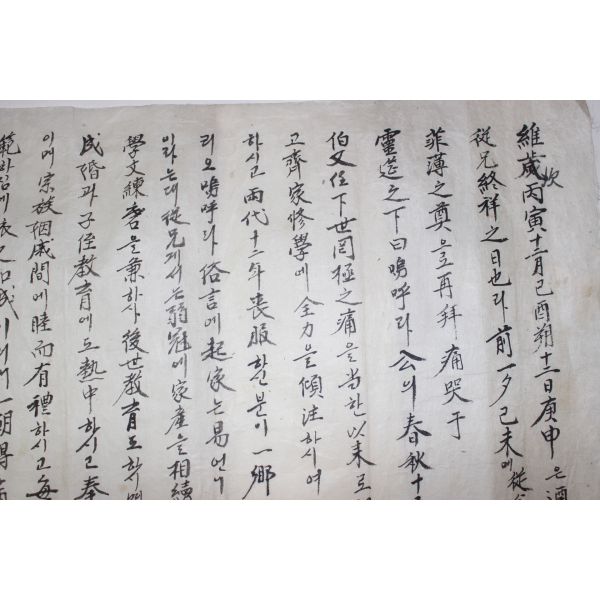 維歲次丙寅十二月己酉朔十二日庚申은
從兄終祥之日也라前一夕己未에從
菲薄之奠으로再拜痛哭于
靈筵之下曰嗚呼라公의春秋十
伯父任下世罔極之痛을當한以來로
고齊家修學에全力을傾注하시여
하시고兩代十二年喪服하신분이一鄕
리오嗚呼라俗言에起家는易언니
이라는데從兄게서는弱冠에家産을相續
學文練磨을兼하사後世敎育도하시며
成婚과子侄敎育에도熱中하시고奉
이며宗族姻戚間에睦而有禮하시고每
範하심에